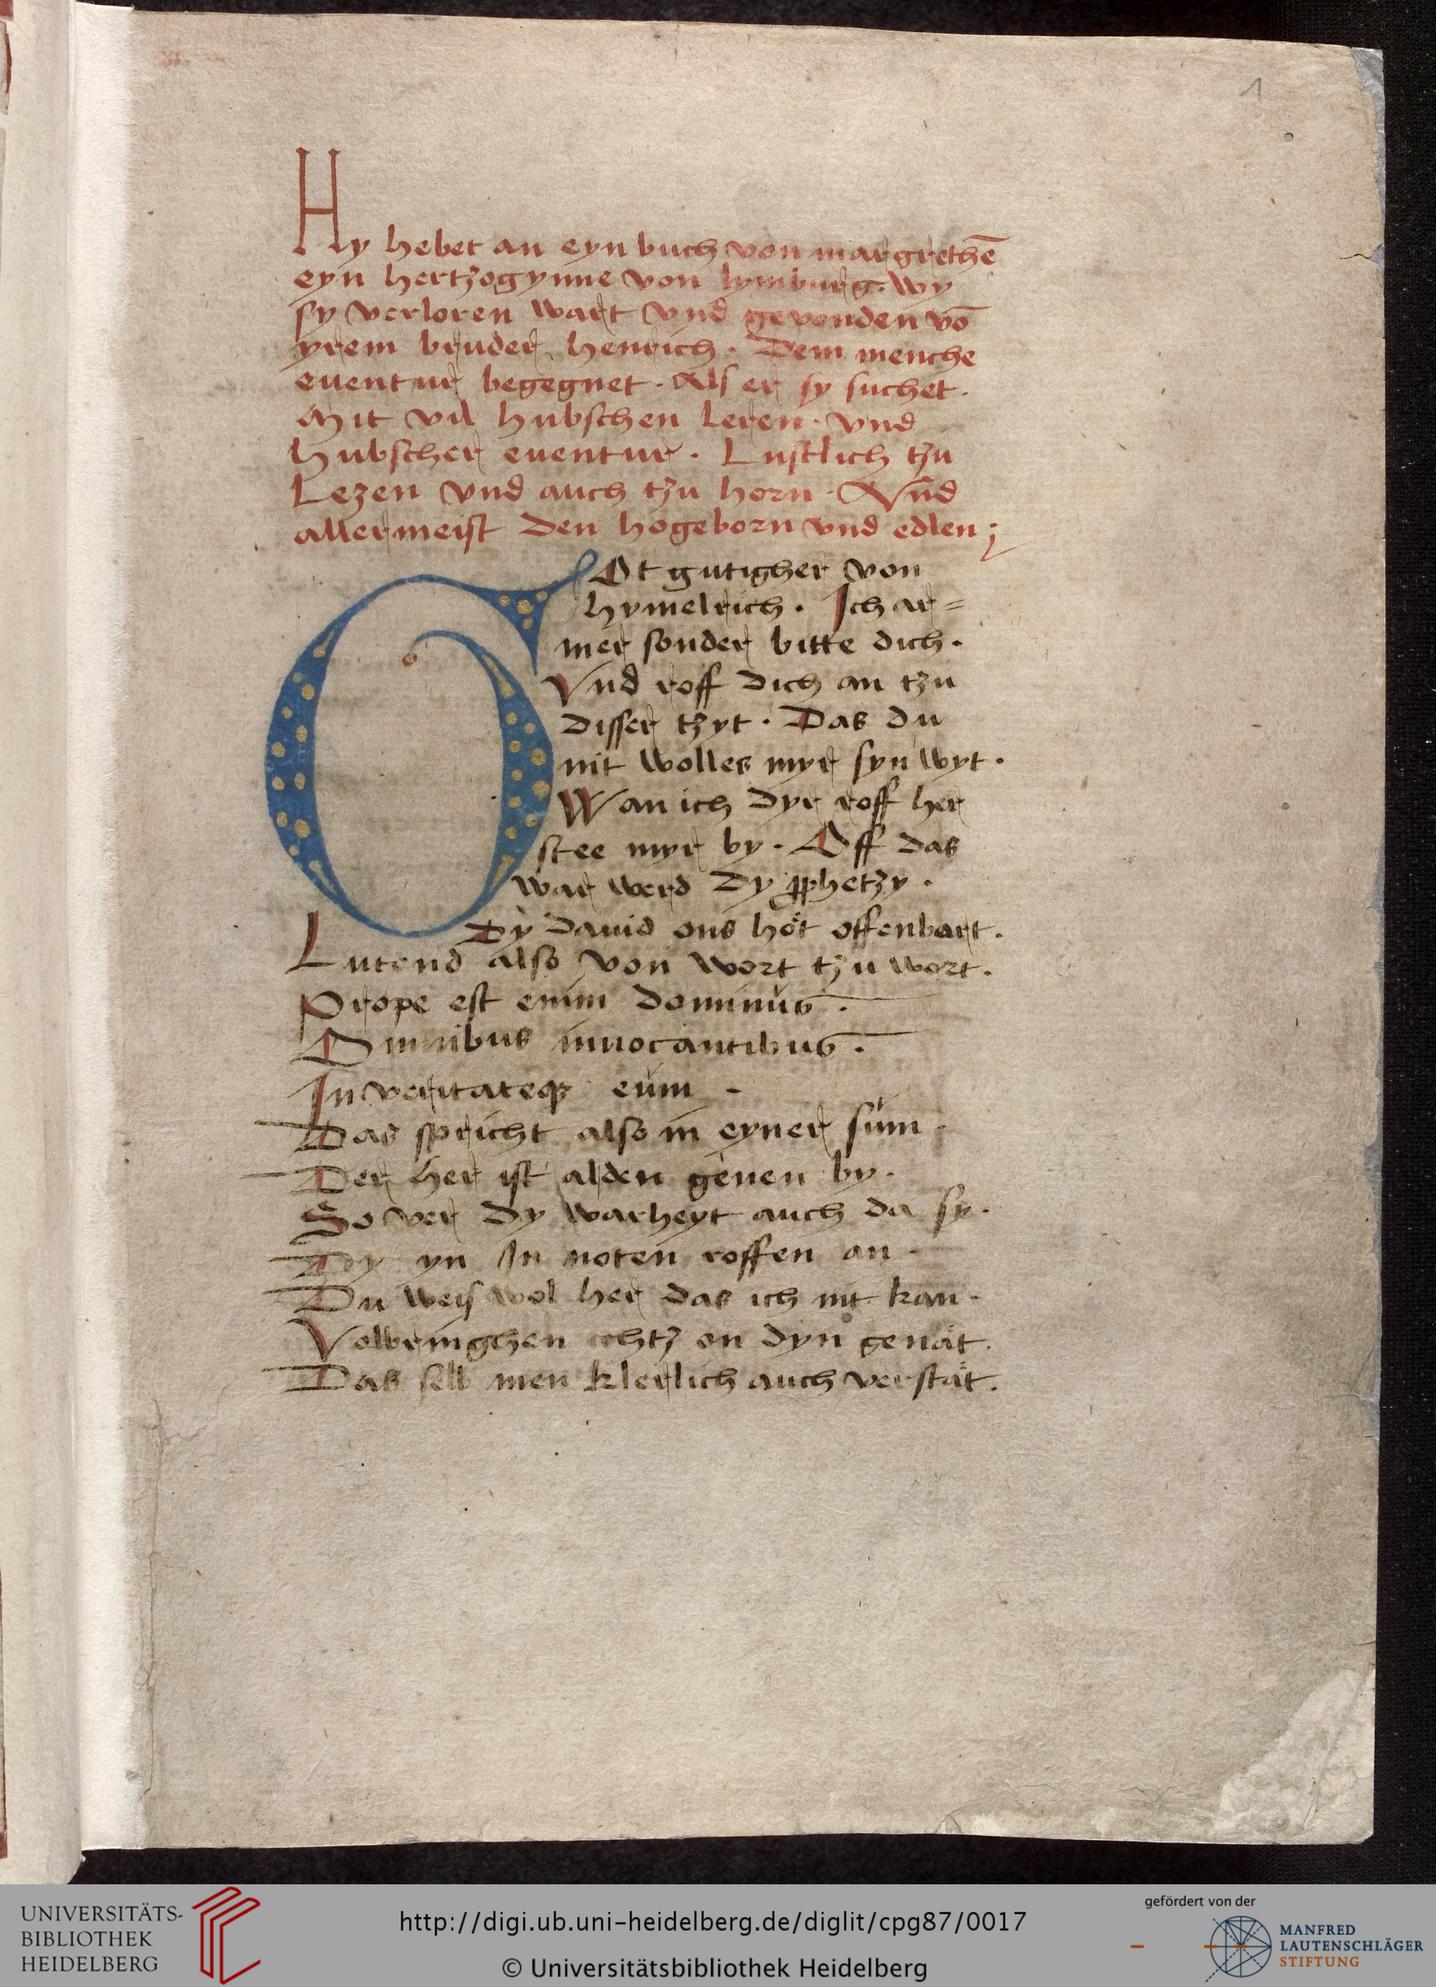 1
Hy hebet an eyn buch von margrethē
eyn hertzogynne von lymburg. wy
sy verloren wart vnd gevonden vō
yrem bruder henrich. Dem menche
euentur begegnet. Als er sy suchet.
Mit vil hubschen leren. vnd
hubscher euentur. Lustlich tzu
Lezen vnd auch tzu horn. Vnd
allermeist den hogeborn vnd edlen;
GOt gutigher von
hymelrich. Ich ar=
mer sonder bitte dich.
Vnd roff dich an tzu
disser tzyt. Das du
nit wolles myr syn wyt.
Wan ich dyr roff her
stee myr by. Off das
war werd dy ꝓphetzy.
Dy dauid ons hot offenbart.
Lutend also von wort tzu wort.
Prope est enim dominus.
Omnibus inuocantibus.
In veritateqꝫ eum.
Das spricht also in eyner sum.
Der her ist alden genen by.
So ver dy warheyt auch da sy.
Dy yn In noten roffen an.
Du weis wol her das ich nit kan.
Volbringhen ichtz on dyn genat.
Das selb men klerlich auch verstat.
UNIVERSITÄTS-
BIBLIOTHEK
HEIDELBERG
http://digi.ub.uni-heidelberg.de/diglit/cpg87/0017
© Universitätsbibliothek Heidelberg
gefördert von der
MANFRED
LAUTENSCHLÄGER
STIFTUNG